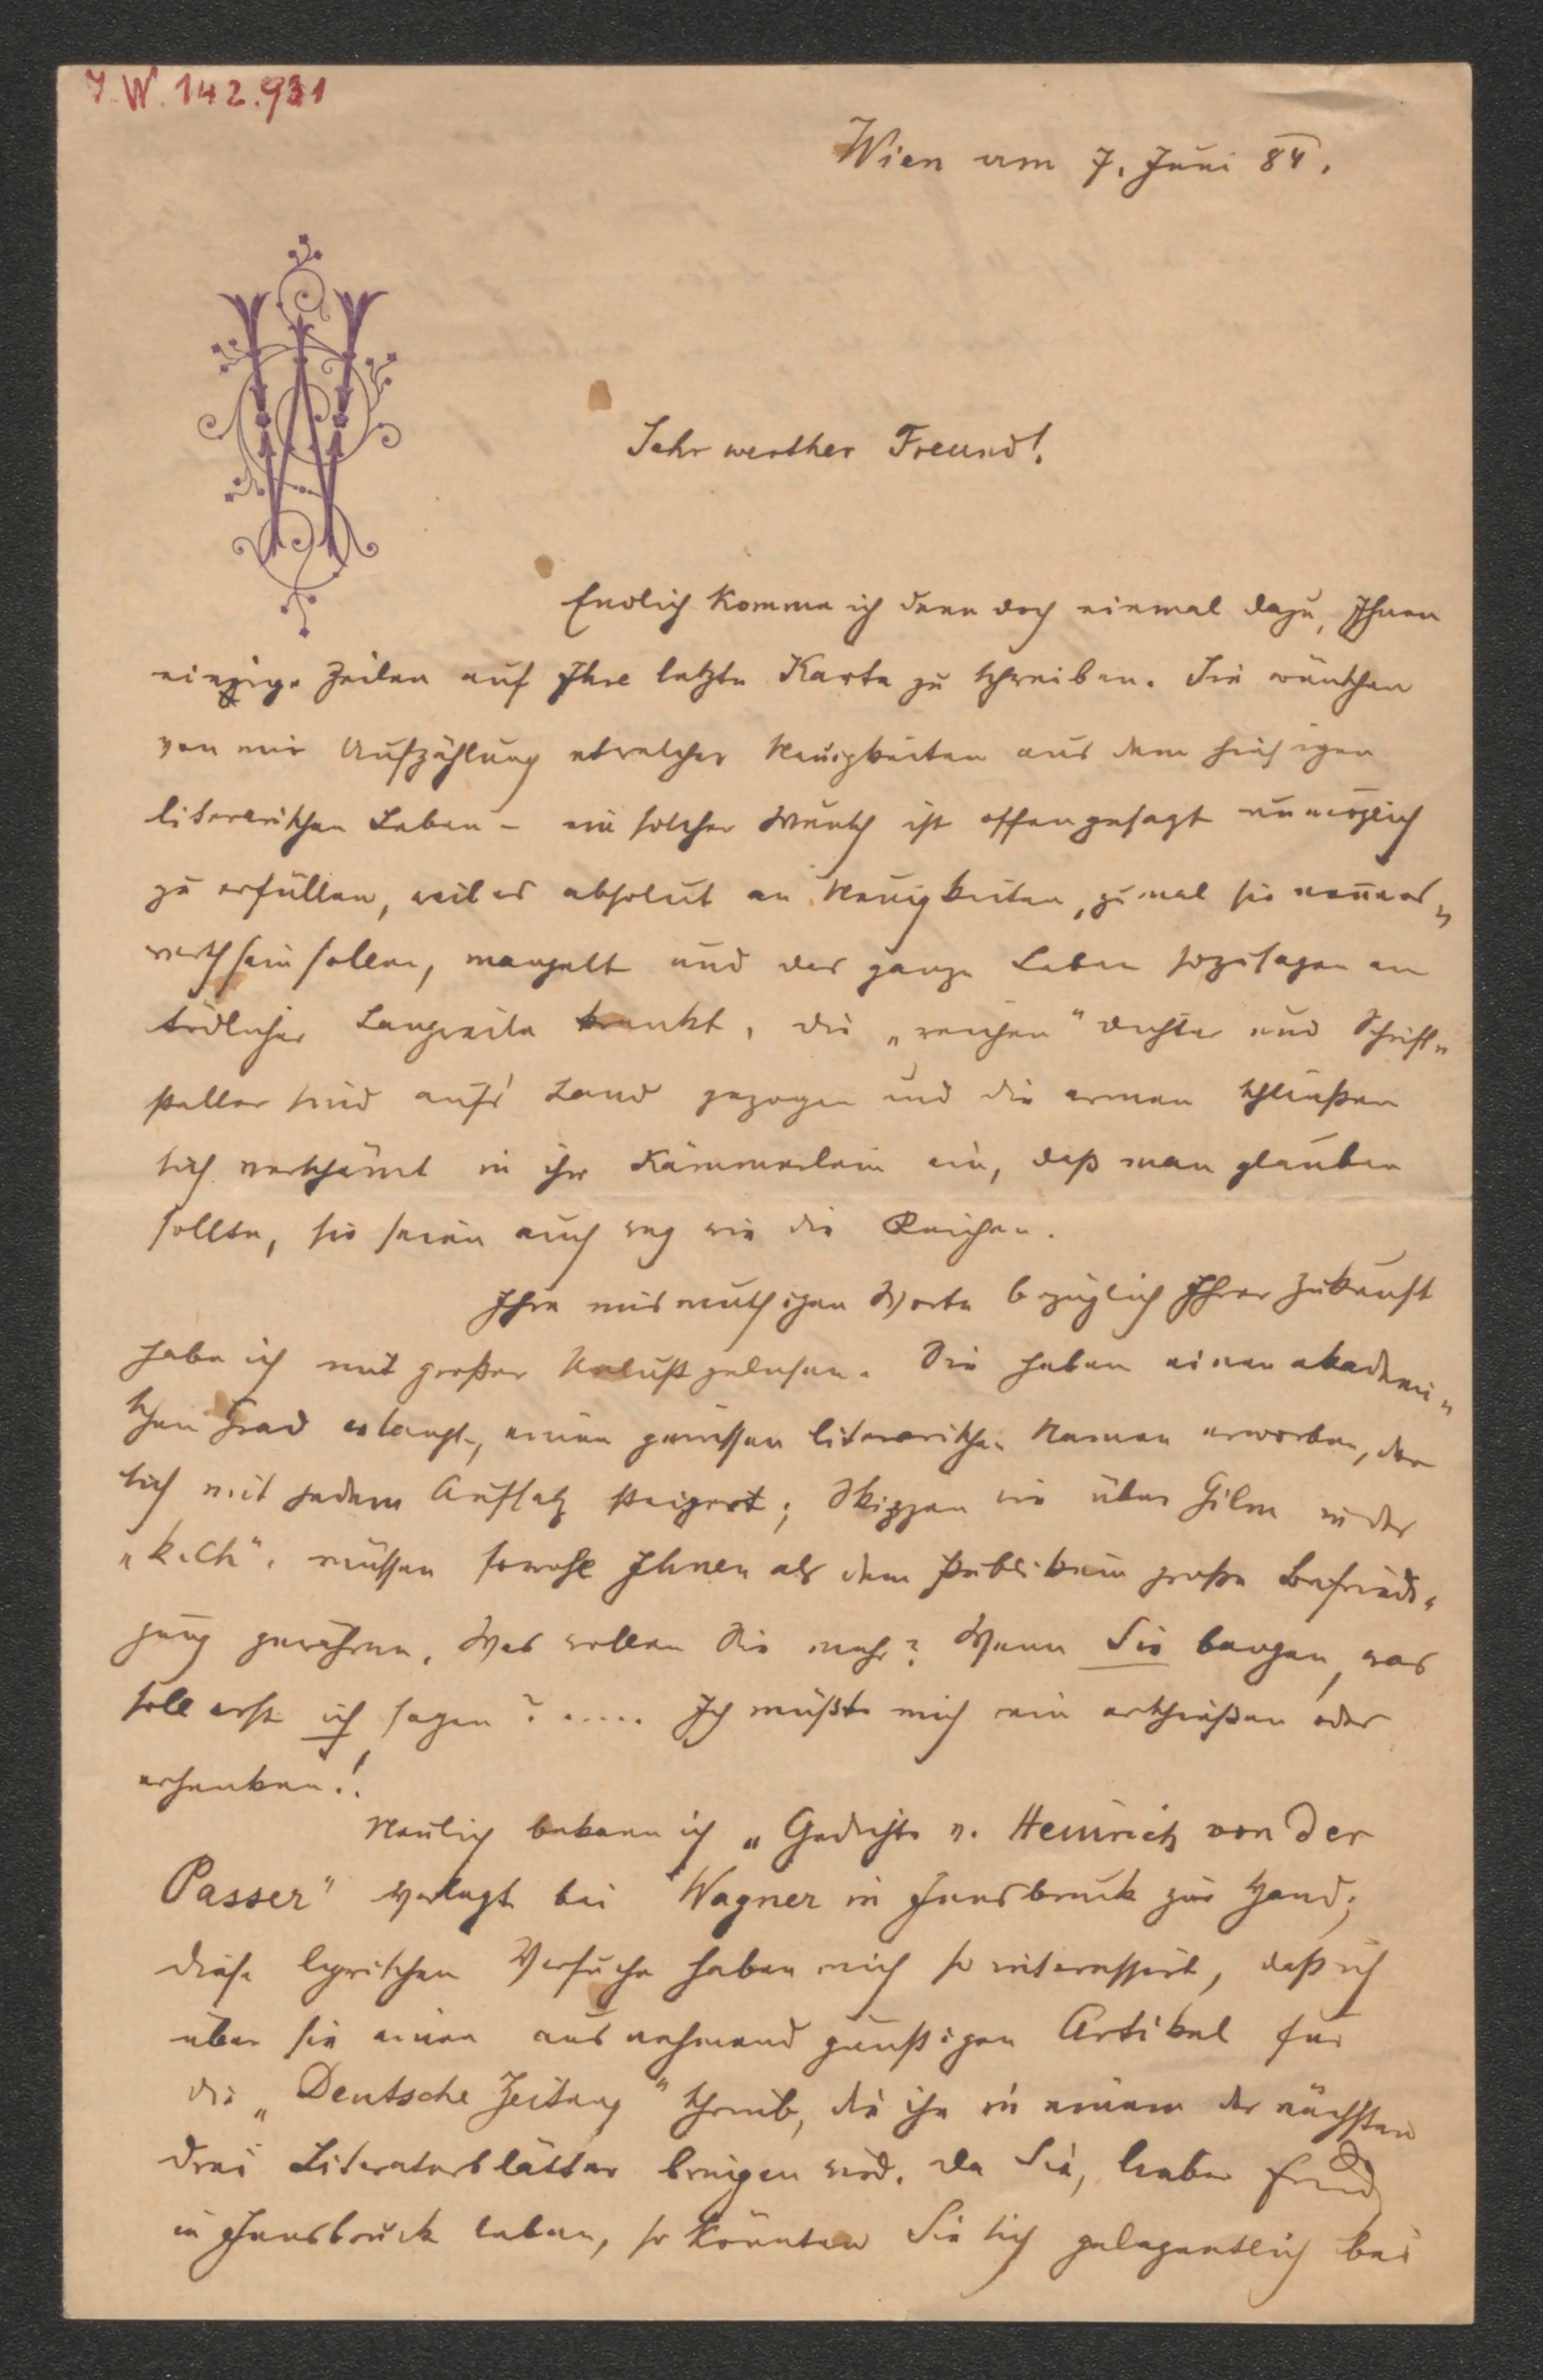 I.W. 142.931
Wien am 7. Juni 84.
Sehr werther Freund!
Endlich komme ich denn doch einmal dazu, Ihnen
einzige Zeilen auf Ihre letzte Karte zu schreiben. Sie wünschen
von mir Aufzählung etwelcher Neuigkeiten aus dem hiesigen
literarischen Leben – ein solcher Wunsch ist offengesagt unmöglich
zu erfüllen, weil es absolut an Neuigkeiten, zumal sie nennens„
werth sein sollen, mangelt und das ganze Leben sozusagen an
tödlicher Langweile krankt, die „reichen" Dichter und Schrift„
steller sind auf's Land gezogen und die armen schließen
sich verschämt in ihr Kämmerlein ein, daß man glauben
sollte, sie seien auch weg wie die Reichen.
Ihre mismuthigen Worte bezüglich Ihrer Zukunft
habe ich mit großer Unlust gelesen. Sie haben einen akademi„
schen Grad erlangt, einen gewissen literarischen Namen erworben, der
sich mit jedem Aufsatz steigert; Skizzen wie über Gilm in der
„k. Ch". müssen sowohl Ihnen als dem Publikum große Befriedi„
gung gewähren. Was wollen Sie mehr? Wenn Sie bangen, was
soll erst ich sagen? ..... Ich müßte mich rein erschießen oder
erhenken!
Neulich bekam ich „Gedichte v. Heinrich von der
Passer" verlegt bei Wagner in Innsbruck zur Hand;
diese lyrischen Versuche haben mich so interessirt, daß ich
über sie einen ausnehmend günstigen Artikel für
die „Deutsche Zeitung" schrieb, die ihn in einem der nächsten
drei Literaturblätter bringen wird. Da Sie, lieber Freund,
in Innsbruck leben, so könnten Sie sich gelegentlich bei